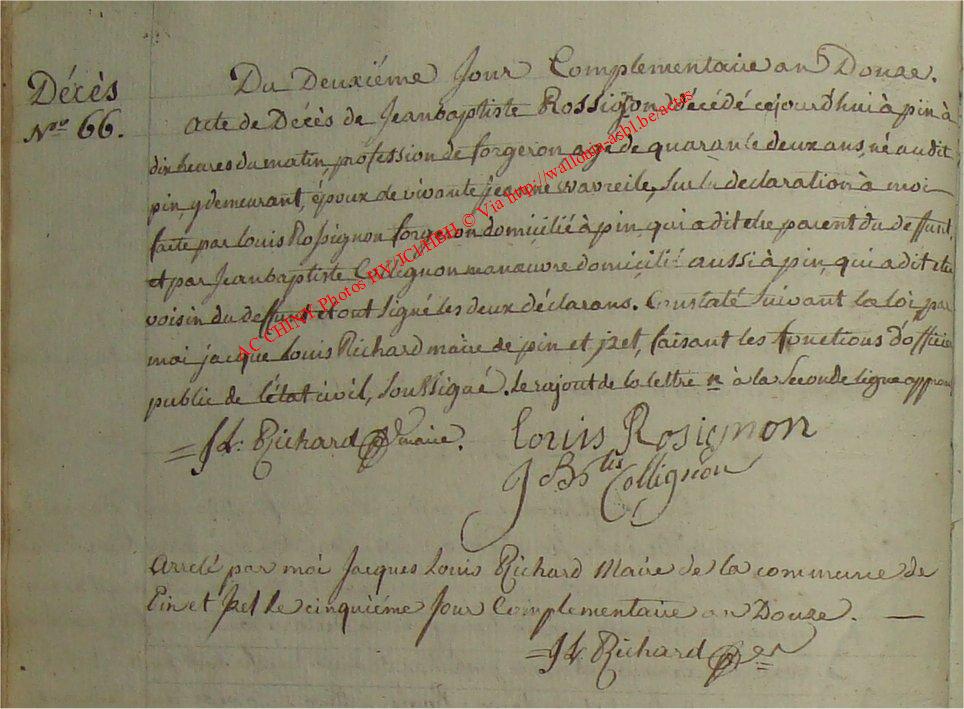 Décès
N.ro 66.
Du Deuxiéme Jour Complementaire an Douze.
acte de Décès de Jeanbaptiste Rossignon décédé cejourdhui à pin à
dix heures du matin, profession de forgeron agé de quarante deux ans, né audit
pin, y demeurant, époux de vivante jeanne wavreile, sur la declaration à moi
faite par Louis Rossignon forgeron domicilié à pin, qui a dit etre parent du deffunt,
et par Jeanbaptiste Collignon manœuvre domicilié aussi à pin, qui a dit etre
voisin du deffunt et ont signé les deux déclarans. Constaté suivant la loi par
moi jacque Louis Richard maire de pin et izel, faisant les fonctions d'officier
public de l'état civil, soussigné. le rajout de la lettre n à la seconde ligne approu
JL. Richard maire. Louis Rosignon
J Btis Collignon
Arreté par moi Jacques Louis Richard Maire de la commune de
Pin et Izel le cinquiéme Jour Complementaire an Douze.
JL Richard
AC CHINY, Photos HVJCJ/HBH © Via http://wallonia-asbl.be/actes